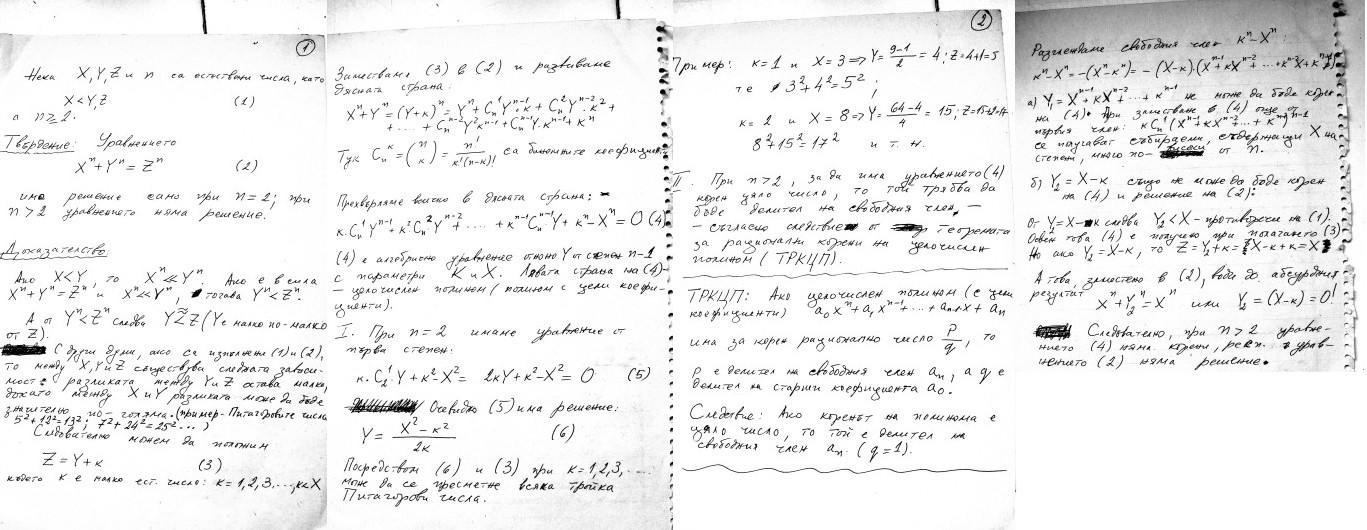 1
Нека X,Y,Z и n са естествени числа, като
X<Y,Z (1)
и n≥2.
Твърдение: Уравнението
Xⁿ+Yⁿ=Zⁿ (2)
има решение само при n=2; при
n>2 уравнението няма решение.
Доказателство:
Ако X<Y, то Xⁿ≪Yⁿ. Ако е в сила
Xⁿ+Yⁿ=Zⁿ и Xⁿ≪Yⁿ, тогава Yⁿ<Zⁿ.
А от Yⁿ<Zⁿ следва Y≲Z (Y е малко по-малко
от Z).
С други думи, ако са изпълнени (1) и (2),
то между X,Y и Z съществува следната зависи-
мост: разликата между Y и Z остава малка,
докато между X и Y разликата може да бъде
значително по-голяма. (пример-Питагоровите числа
5²+12²=13²; 7²+24²=25²...)
Следователно можем да положим
Z=Y+к (3)
където к е малко ест. число: к=1,2,3,...,к<X
Заместваме (3) в (2) и развиваме
дясната страна:
Xⁿ+Yⁿ=(Y+к)ⁿ=Yⁿ+Cₙ¹Yⁿ⁻¹.к+Cₙ²Yⁿ⁻².к²+
+....+Cₙⁿ⁻¹Y.кⁿ⁻¹+кⁿ
Тук Cₙᵏ=(n к)=n!/к!(n-к)! са биномните коефициенти
Прехвърляме всичко в дясната страна:
к.Cₙ¹Yⁿ⁻¹+к²Cₙ²Yⁿ⁻²+....+кⁿ⁻¹Cₙⁿ⁻¹Y+кⁿ-Xⁿ=0 (4)
(4) е алгебрично уравнение относно Y от степен n-1
с параметри к и X. Лявата страна на (4)-
-целочислен полином (полином с цели коефи-
циенти).
I. При n=2 имаме уравнение от
първа степен:
к.C₂¹.Y+к²-X²= 2кY+к²-X²=0 (5)
Очевидно (5) има решение:
Y=(X²-к²)/2к (6)
Посредством (6) и (3) при к=1,2,3,....
може да се пресметне всяка тройка
Питагорови числа.
2
Пример: к=1 и X=3⇒Y=(9-1)/2=4; Z=4+1=5
те 3²+4²=5²;
к=2 и X=8⇒Y=(64-4)/4=15; Z=15+2=17
8²+15²=17² и т.н.
II. При n>2, за да има уравнението (4)
корен цяло число, то той трябва да
бъде делител на свободния член,-
-съгласно следствие от Теоремата
за рационални корени на целочислен
полином (ТРКЦП).
ТРКЦП: Ако целочислен полином (с цели
коефициенти) a₀xⁿ+a₁xⁿ⁻¹+...+aₙ₋₁x+aₙ
има за корен рационално число p/q, то
p е делител на свободния член aₙ, а q е
делител на старшия коефициента a₀.
Следствие: Ако коренът на полинома е
цяло число, то той е делител на
свободния член aₙ. (q=1).
Разглеждаме свободния член кⁿ-Xⁿ:
кⁿ-Xⁿ=-(Xⁿ-кⁿ)=-(X-к).(Xⁿ⁻¹+кXⁿ⁻²+...+кⁿ⁻²X+кⁿ⁻¹)
а) Y₁=Xⁿ⁻¹+кXⁿ⁻²+...+кⁿ⁻¹ не може да бъде корен
на (4). При заместване в (4) още от
първия член: кCₙ¹(Xⁿ⁻¹+кXⁿ⁻²+...+кⁿ⁻¹)ⁿ⁻¹
се получават събираеми, съдържащи X на
степени, много по- от n.
б) Y₂=X-к също не може да бъде корен
на (4) и решение на (2):
От Y₂=X-к следва Y₂<X-противоречи на (1).
Освен това (4) е получено при полагането (3)
Но ако Y₂=X-к, то Z=Y₂+к=X-к+к=X
А това, заместено в (2), води до абсурдния
резултат Xⁿ+Y₂ⁿ=Xⁿ или Y₂=(X-к)=0!
Следователно, при n>2 уравне-
нието (4) няма корени, респ. урав-
нението (2) няма решение.